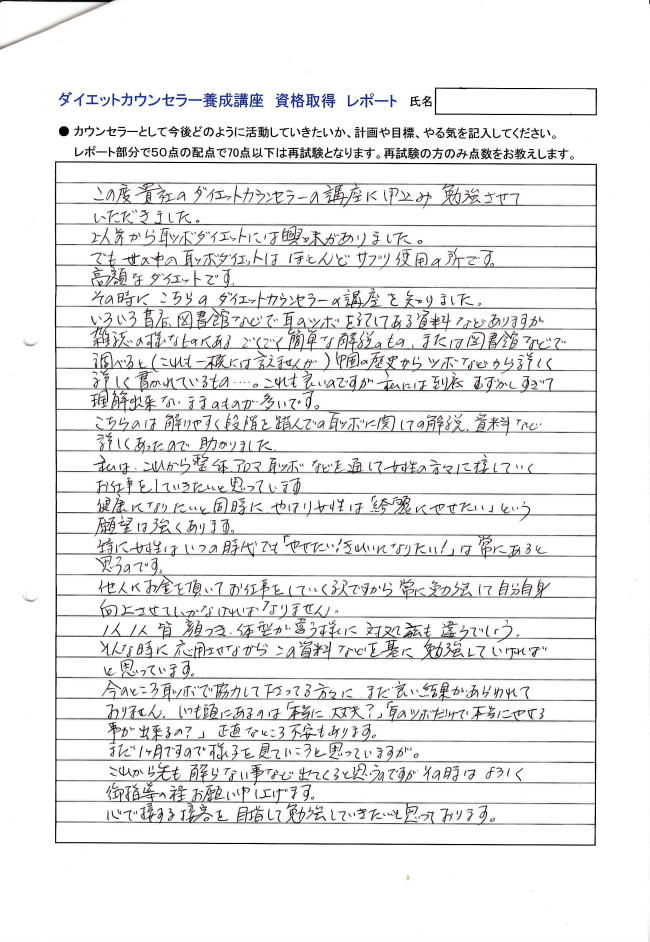 ダイエットカウンセラー養成講座 資格取得 レポート 氏名
● カウンセラーとして今後どのように活動していきたいか、計画や目標、やる気を記入してください。
レポート部分で50点の配点で70点以下は再試験となります。再試験の方のみ点数をお教えします。
この度貴社のダイエットカウンセラーの講座に申込み勉強させて
いただきました。
以前から耳ツボダイエットには興味がありました。
でも世の中の耳ツボダイエットはほとんどサプリ使用の所です。
高額なダイエットです。
その時にこちらのダイエットカウンセラーの講座を知りました。
いろいろ書店、図書館などで耳のツボを記してある資料などありますが
雑誌の様なものにあるごくごく簡単な解説のもの、または図書館などで
調べると(これも一概には言えませんが)中国の歴史からツボなどから詳しく
詳しく書かれているもの…。これも良いのですが私には到底むずかしすぎて
理解出来ないままのものが多いです。
こちらのは解りやすく段階を踏んでの耳ツボに関しての解説、資料など
詳しくあったので助かりました。
私は、これから整体、アロマ、耳ツボなどを通して女性の方々に接していく
お仕事をしていきたいと思っています
健康になりたいと同時にやはり女性は「綺麗にやせたい」という
願望は強くあります。
特に女性はいつの時代でも「やせたい!きれいになりたい!」は常にあると
思うのです。
他人にお金を頂いてお仕事をしていく訳ですから常に勉強して自分自身
向上させていかなければなりません。
1人1人皆顔つき、体型が違う様に対処法も違うでしょう。
そんな時に応用させながらこの資料などを基に勉強していければ
と思っています。
今のところ耳ツボで協力して下さってる方々にまだ良い結果があらわれて
おりません。いつも頭にあるのは「本当に大丈夫?」「耳のツボだけで本当にやせる
事が出来るの?」正直なところ不安もあります。
まだ1ヶ月ですので様子を見ていこうと思っていますが。
これから先も解らない事など出てくると思うのですがその時はよろしく
御指導の程お願い申し上げます。
心で接する接客を目指して勉強していきたいと思っております。